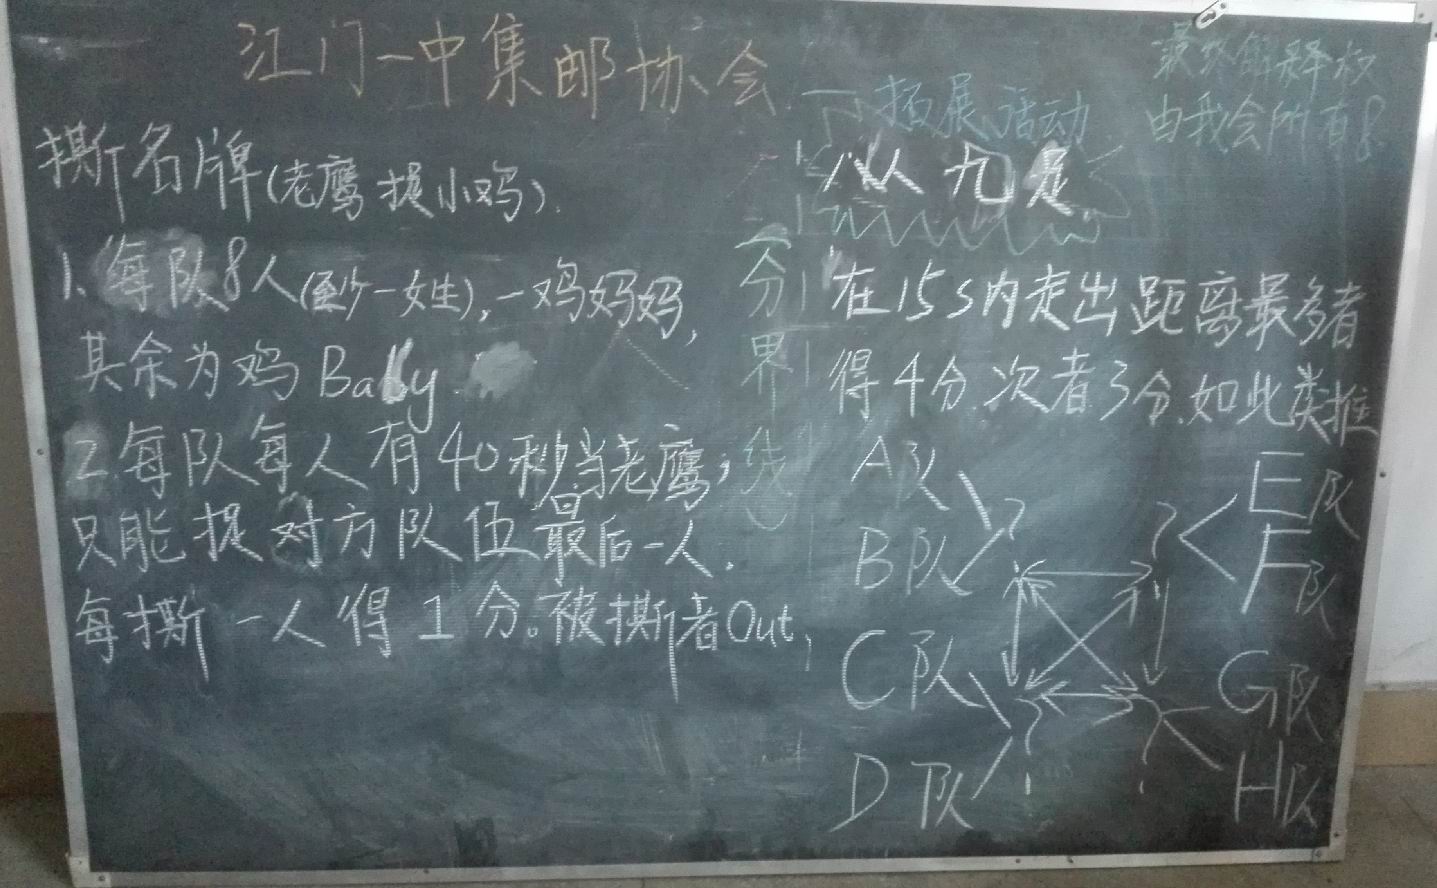 江门一中集邮协会
一拓展活动
最终解释权
由我会所有8
撕名牌(老鹰捉小鸡).
1.每队8人(至少一女生),一鸡妈妈,
其余为鸡Baby
2.每队每人有40秒当老鹰;
只能捉对方队伍最后一人.
每撕一人得1分。被撕者Out,
分界线
八人九足
在15s内走出距离最多者
得4分.次者3分.如此类推
A队
B队
C队
D队
E队
F队
G队
H队
?
?
?
?